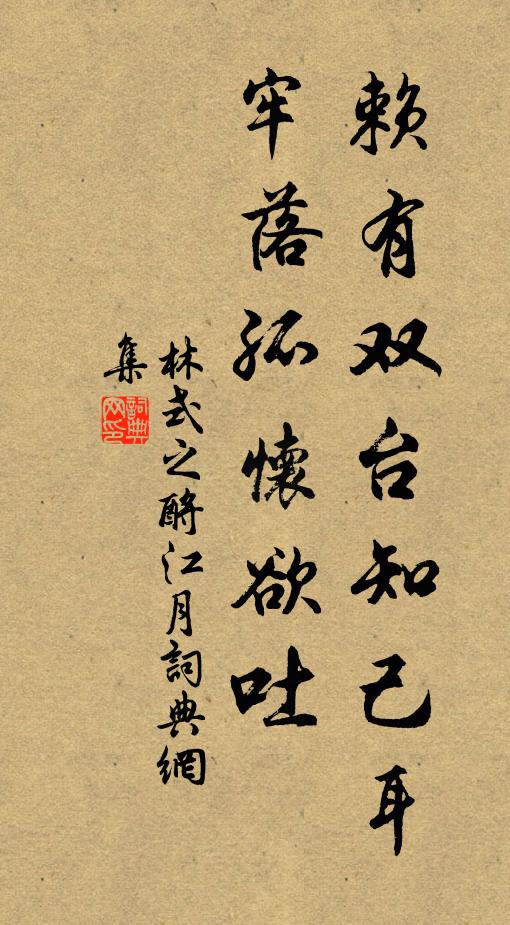 赖有双台知己耳
牢落孤懷欲吐
林式之酹江月詞典網
集
詞典
网印